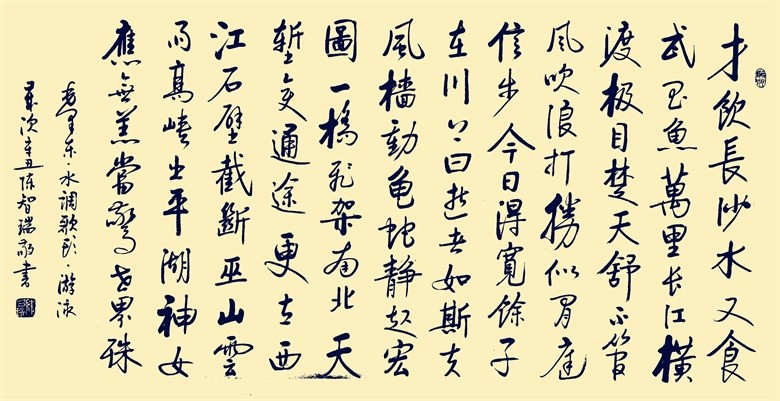 才飲長沙水又食
武昌魚萬里长江橫
渡极目楚天舒不管
风吹浪打勝似閒庭
信步今日得寬餘子
在川上曰逝者如斯夫
風檣動龟蛇静起宏
圖一橋飛架南北天
塹变通途更立西
江石壁截斷巫山雲
雨高峽出平湖神女
應無恙當驚世界殊
毛泽东·水调歌头·游泳
歲次辛丑陈智瑞敬書